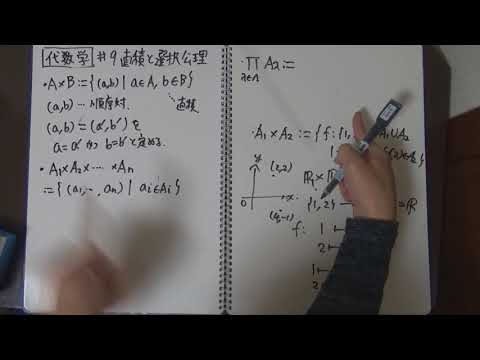 代数学 #9 直積と選択公理
・A×B := {(a,b) | a∈A, b∈B}
(a,b) … 順序対. 直積
(a,b) = (a',b') を
a=a' かつ b=b' と定める.
・A₁×A₂×‥‥×An
:= { (a₁,…,an) | ai∈Ai }
∏ Aλ :=
λ∈Λ
・A₁×A₂ := { f: {1, A₁∪A₂
y (2,2)
x
0
{1,2} = ℝ
f: 1 ↦
2 ↦
1 ↦
2